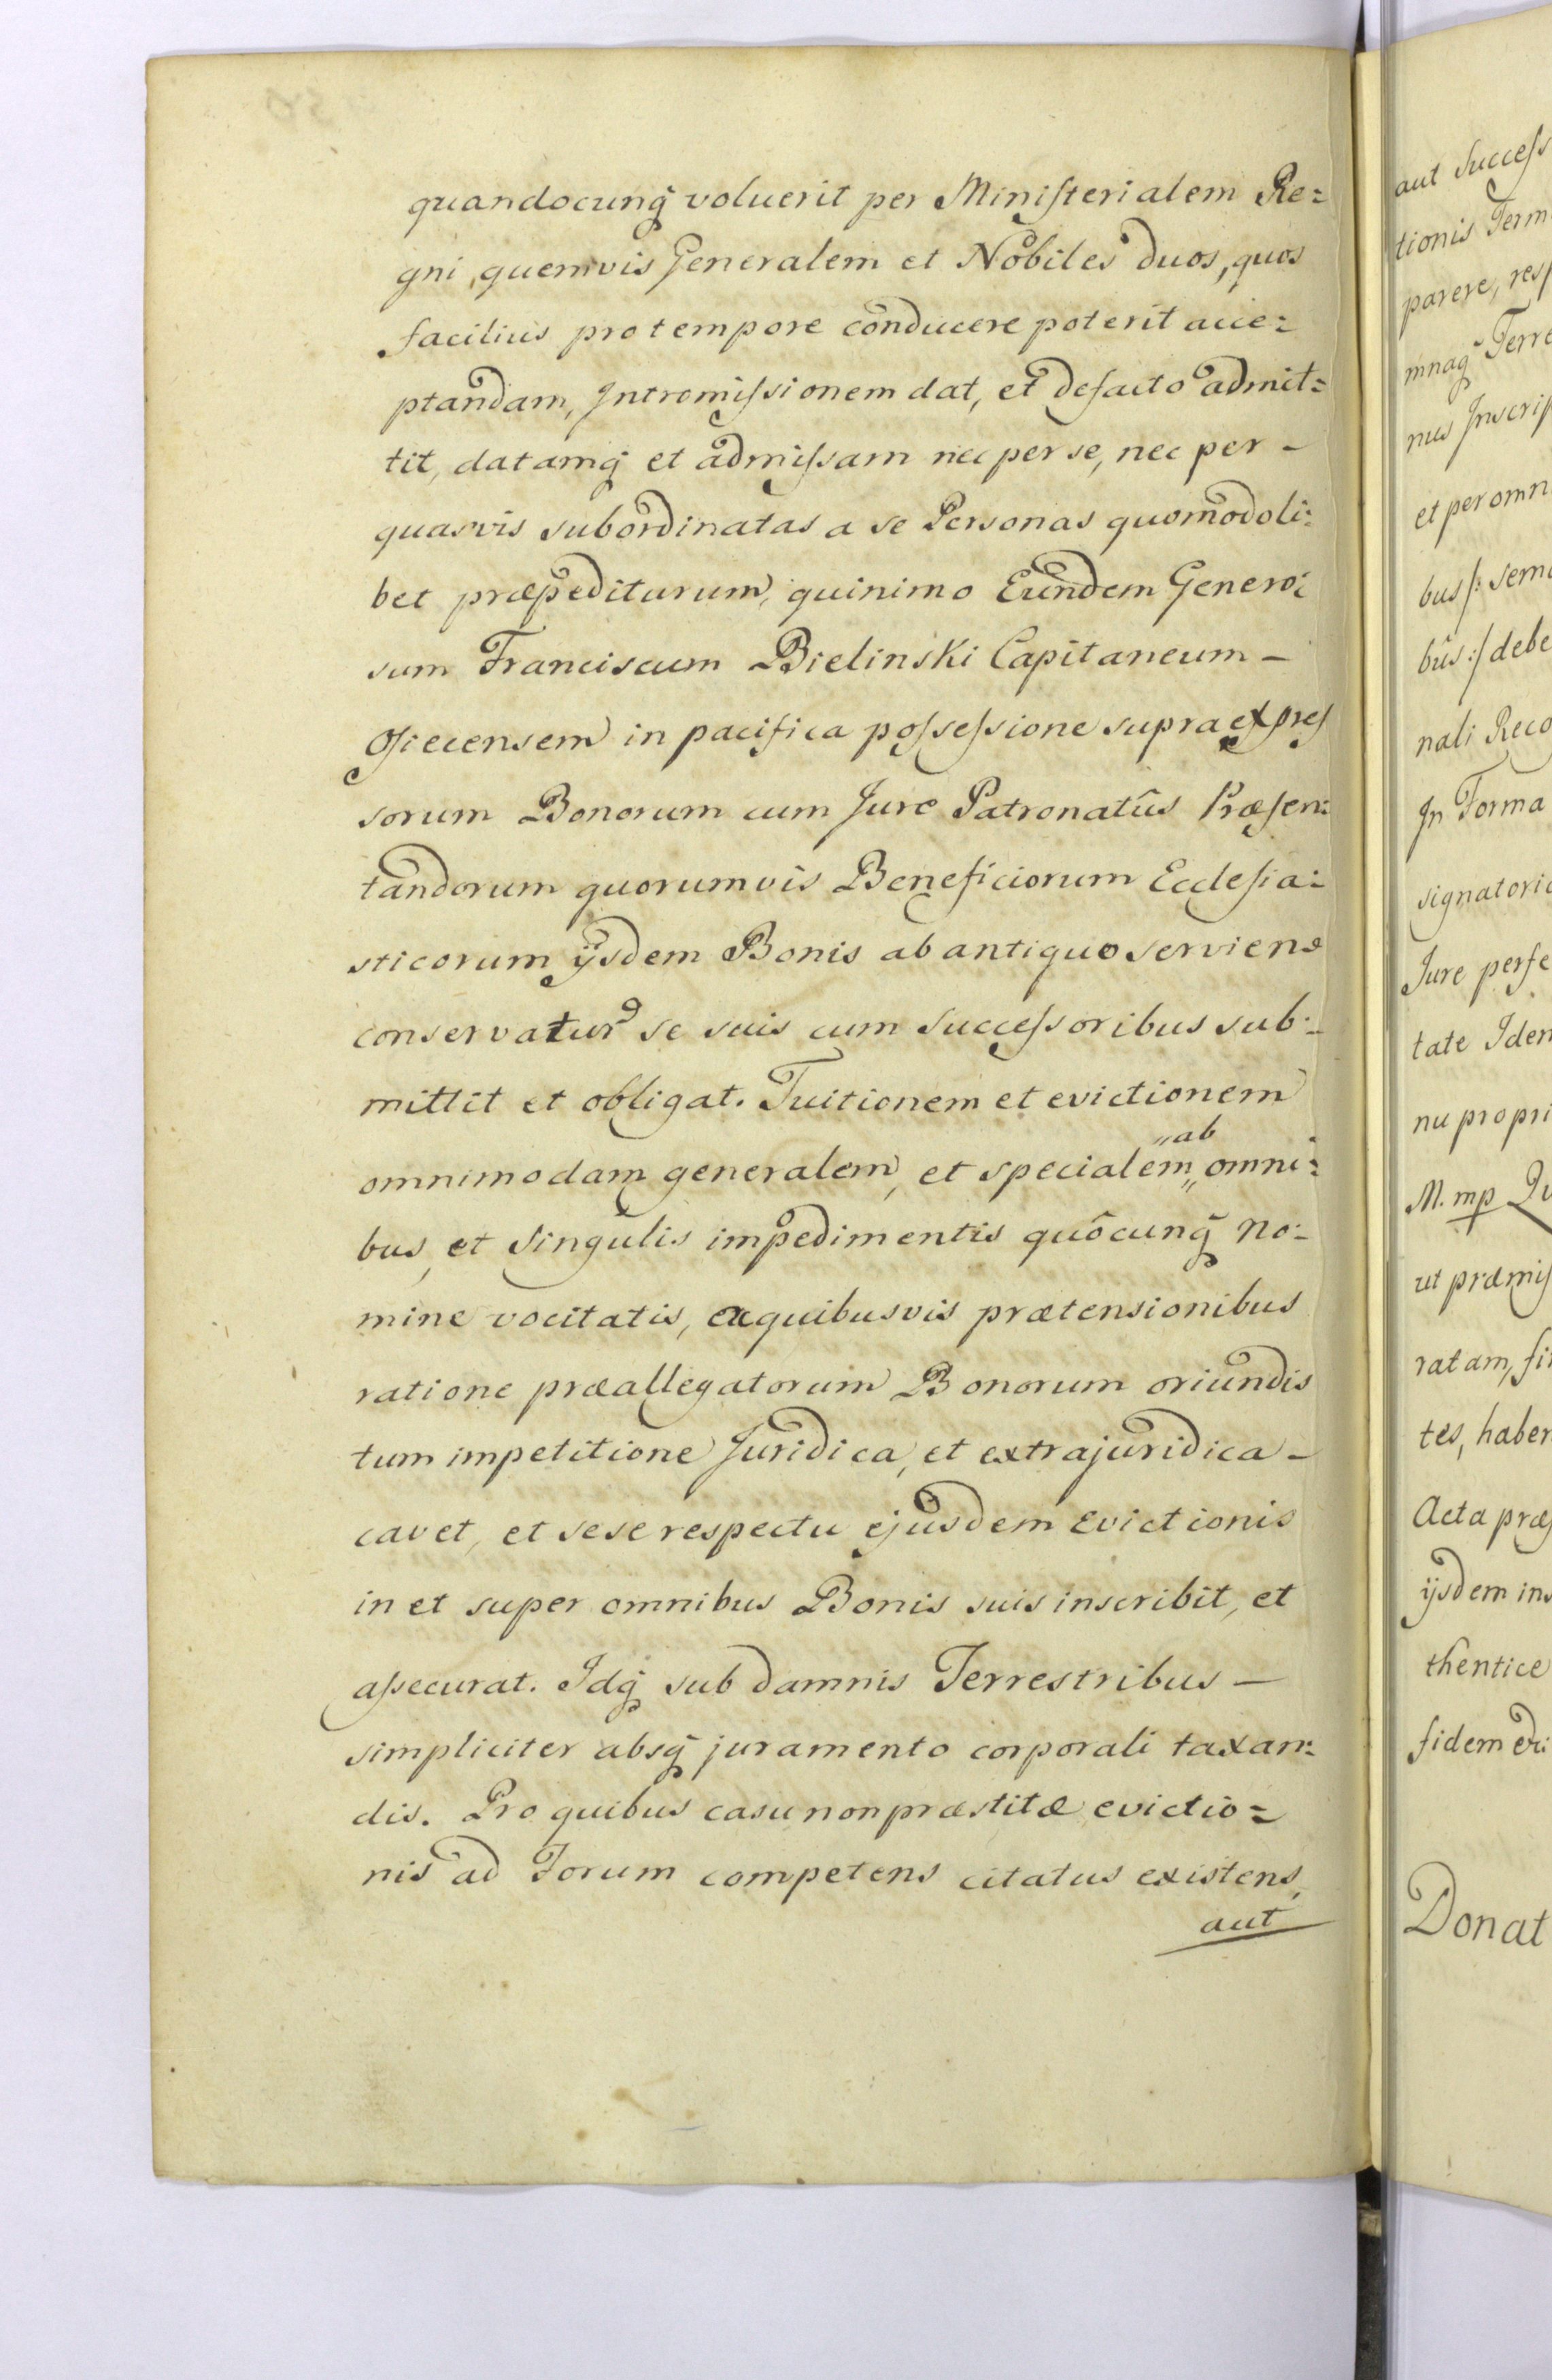 quandocunq̃ voluerit per Ministerialem Re=
gni, quemvis Generalem et Nobiles duos, quos
facilius pro tempore conducere poterit acce=
ptandam, Intromissionem dat, et defacto admit=
tit, datamq̃ et admissam nec per se, nec per –
quasvis subordinatas a se Personas quomodoli=
bet præpediturum, quinimo Eundem Genero=
sum Franciscum Bielinski Capitaneum –
Osiecensem in pacifica possessione supra expres
sorum Bonorum cum Jure Patronatûs Præsen=
tandorum quorumvis Beneficiorum Ecclesia=
sticorum ijsdem Bonis ab antiquo servien
conservatur se suis cum successoribus sub=
mittit et obligat. Tuitionem et evictionem
„ab
omnimodam generalem, et specialem„ omni=
bus, et singulis impedimentis quôcunq̃ no=
mine vocitatis, ex quibusvis prætensionibus
ratione præallegatorum Bonorum oriundis
tum impetitione Juridica, et extrajuridica –
cavet, et sese respectu ejusdem Evictionis
in et super omnibus Bonis suis inscribit, et
assecurat. Idq̃ sub damnis Terrestribus –
simpliciter absq̃ juramento corporali taxan=
dis. Pro quibus casu non præstitæ evictio=
nis ad Forum competens citatus existens,
aut
aut Success
tionis Term
parere, resp
mnaq̃ Terre
nus Inscrip
et per omn
bus /: seme
bûs :/ debe
nali Reco
In Forma
signatorio
Jure perfe
tate Iden
nu propri
M. mp Qu
ut præmis
ratam, fir
tes, haber
Acta præs
ijsdem ins
thentice
fidem
Donat